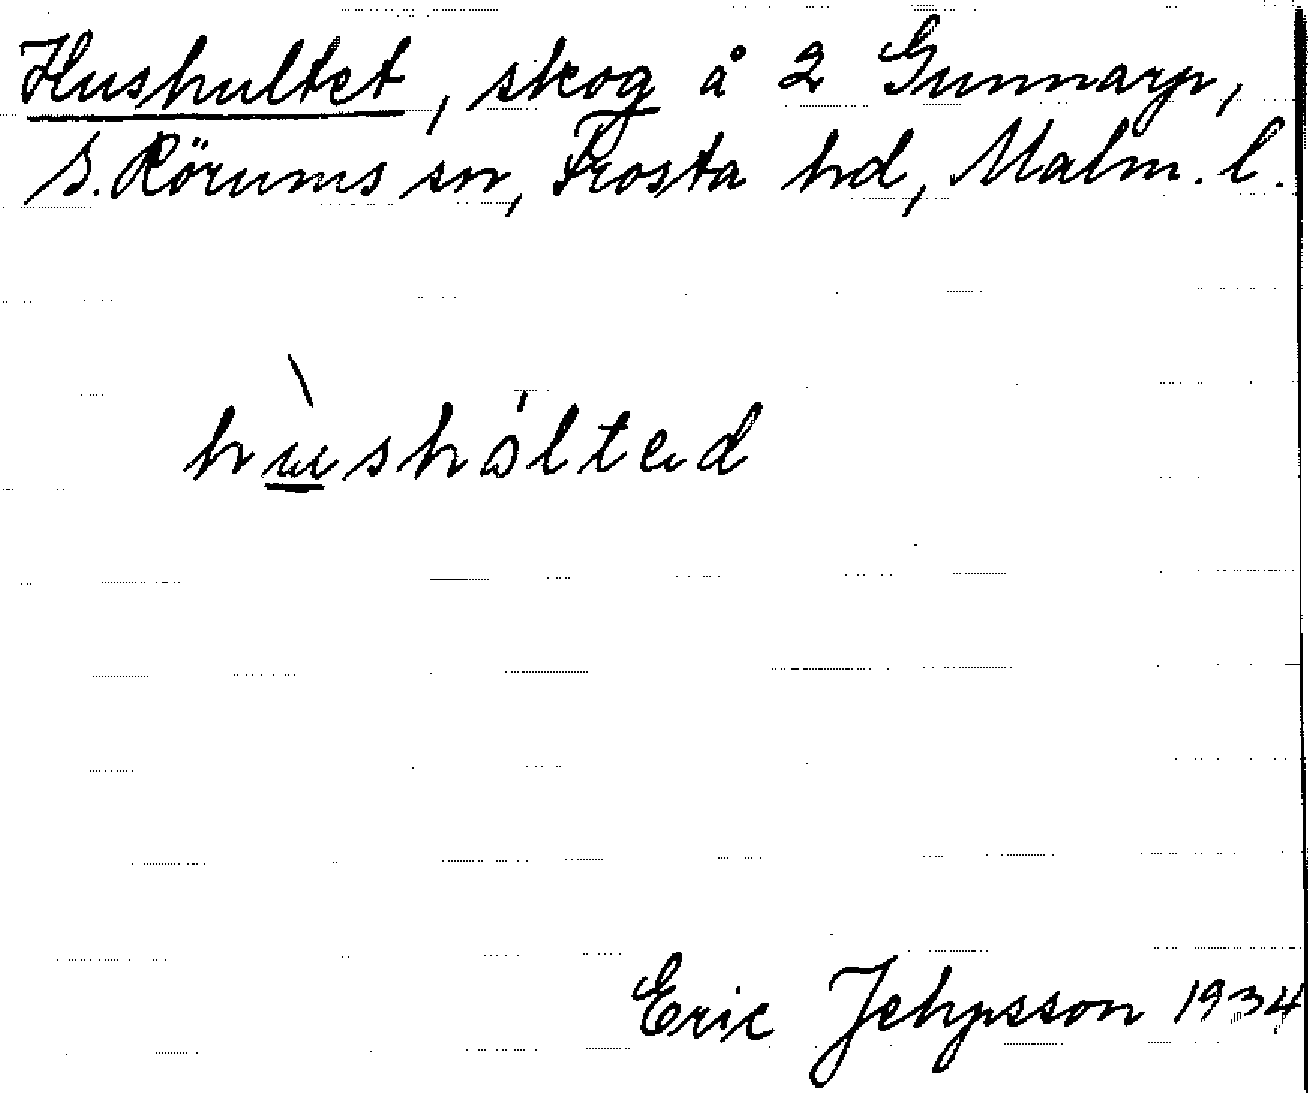 Hushultet, skog å 2 Gunnarp,
S. Rörums sn, Frosta hd, Malm. l.
hùshóltəd
Eric Jehpsson 1934